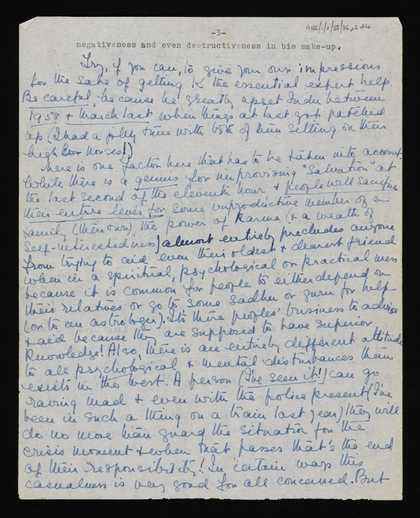 -3-
negativeness and even destructiveness in his make-up.
Try, if you can, to give your own impressions
for the sake of getting K the essential expert help
Be careful, because he greatly upset Indu between
1958 & March last when things at last got patched
up (I had a jolly time with both of them sitting on their
high horses!)
There is one factor here that has to be taken into account.
While there is a genius for improvising "salvation" at
the last second of the eleventh hour & people will sacrifice
their entire lives for some unproductive member of a
family (their own), the power of Karma (& a wealth of
self-interestedness) almost entirely precludes anyone
from trying to aid even their oldest & dearest friend
when in a spiritual, psychological or practical mess
because it is common for people to either depend on
their relatives or go to some sadhu or guru for help
(or to an astrologer). It's these peoples' business to advise
& aid because they are supposed to have superior
Knowledge! Also, there is an entirely different attitude
to all psychological & mental disturbances than
exists in the West. A person (I've seen it!) can go
raving mad & even with the police present (I've
been in such a thing on a train last year) they will
do no more than guard the situation for the
crisis moment & when that passes that's the end
of their responsibility! In certain ways this
casualness is very good for all concerned. But